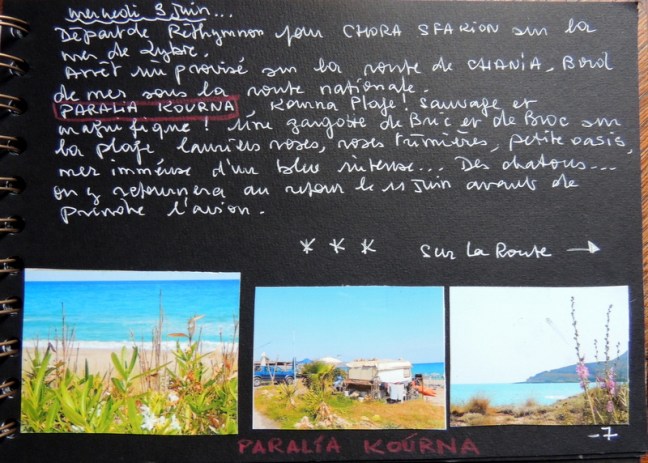 mercredi 3 Juin...
Départ de Réthymnon pour CHORA SFAKION sur la
mer de Lybie.
Arrêt improvisé sur la route de CHANIA, Bord
de mer sous la route nationale.
PARALIA KOURNA, Kourna Plage! Sauvage et
magnifique! Une gargote de Bric et de Broc sur
la plage lauriers roses, roses trémières, petite oasis,
mer immense d'un bleu intense... Des chatons...
on y retournera au retour le 11 Juin avant de
prendre l'avion.
* * * Sur La Route →
PARALÍA KOÚRNA
-7